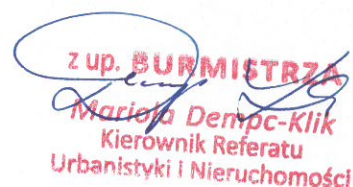 z up. BURMISTRZA
Mariola Dempc-Klik
Kierownik Referatu
Urbanistyki i Nieruchomości